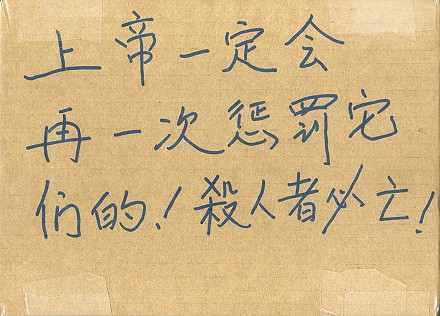 上帝一定会
再一次惩罚它
们的！殺人者必亡！